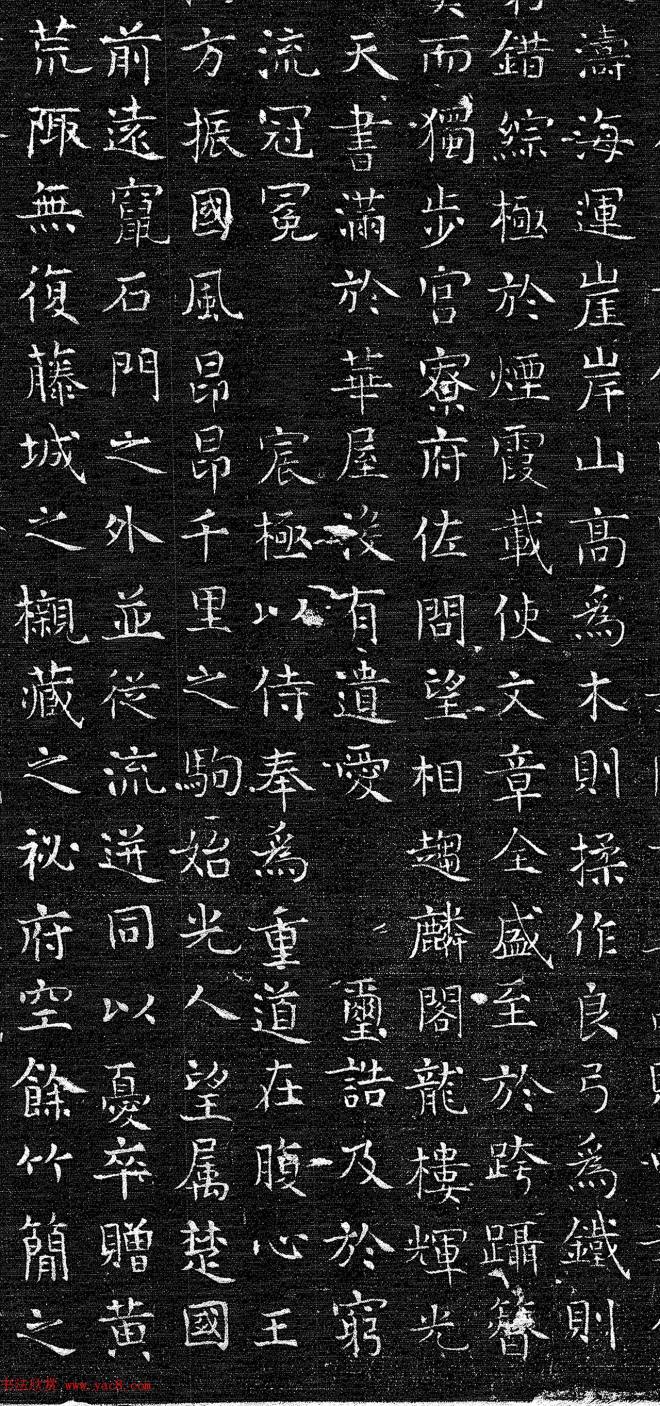 濤海運崖岸山高為木則揉作良弓為鐵則
錯綜極於煙霞載使文章全盛至於跨躡簪
而獨步官寮府佐問望相趨麟閣龍樓輝光
天書滿於華屋没有遺愛 璽誥及於窮
流冠冕 宸極以侍奉為重道在腹心王
方振國風昂昂千里之駒始光人望属楚國
前遠竄石門之外並從流迸同以憂卒贈黄
荒陬無復藤城之櫬藏之祕府空餘竹簡之
书法欣赏 www.yac8.com